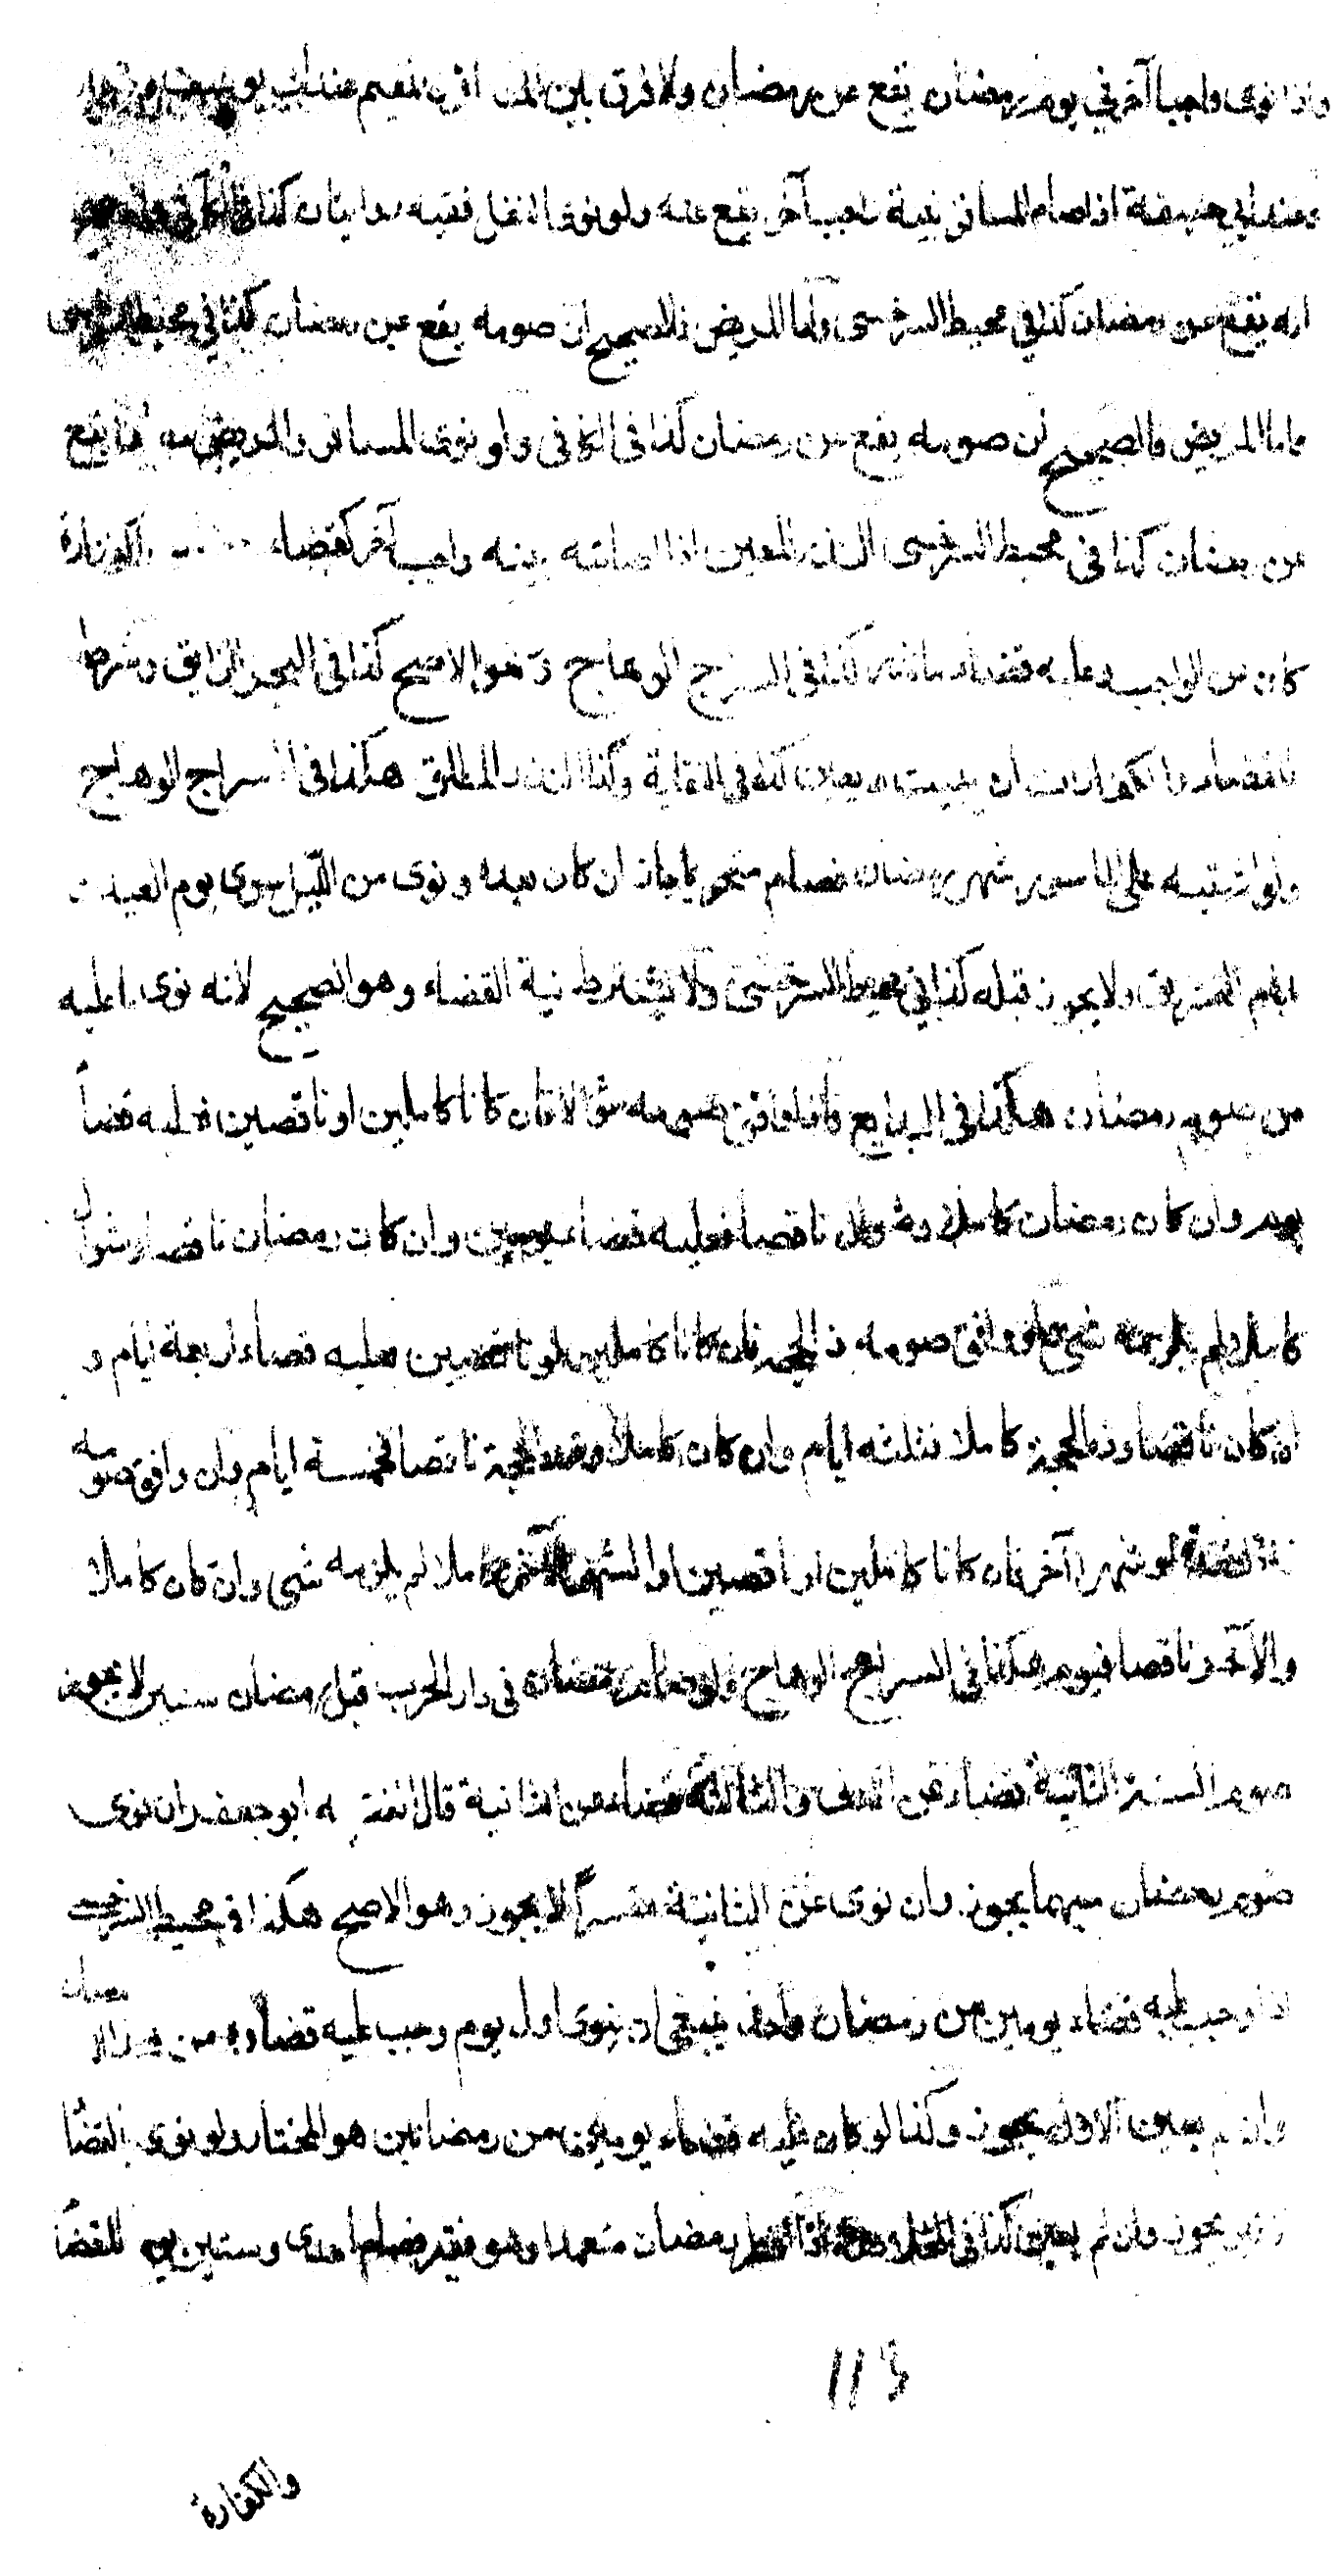 واذا نوى واجبا آخر في يوم رمضان يقع عن رمضان ولا فرق بين المسافر والمقيم عند ابي يوسف ومحمد
وعند ابي حنيفة اذا صام المسافر بنية واجب آخر يقع عنه ولو نوى النفل ففيه روايتان كذا في الكافي
انه يقع عن رمضان كذا في محيط السرخسى واما المريض فالصحيح ان صومه يقع عن رمضان كذا في محيط السرخسى
واما المريض فالصحيح ان صومه يقع عن رمضان كذا فى الكافى ولو نوى المسافر والمريض يقع
عن رمضان كذا فى محيط السرخسى النذر المعين اذا صامه بنية واجب آخر كقضاء والكفارة
كان عن الواجب وعليه قضاء ما نذر كذا فى السراج الوهاج وهو الاصح كذا فى البحر الرايق وشرط
القضاء والكفارات ان يبيت ويعين كذا فى النقاية وكذا النذر المطلق هكذا فى السراج الوهاج
ولو اشتبه على الماسور شهر رمضان فصام متحريا جاز ان كان بعده ونوى من الليل سوى يوم العيد
ايام التشريق ولا يجوز قبله كذا في محيط السرخسى ولا يشترط نية القضاء وهو الصحيح لانه نوى ما عليه
من صوم رمضان هكذا في البدايع فلو وافق صومه شوالا فان كانا كاملين او ناقصين فعليه قضاء
يوم وان كان رمضان كاملا وشوال ناقصا فعليه قضاء يومين وان كان رمضان ناقصا وشوال
كاملا ولم يلزمه شئ ولو وافق صومه ذا الحجة فان كانا كاملين او ناقصين فعليه قضاء اربعة ايام و
ان كان ناقصا وذو الحجة كاملا فثلثه ايام وان كان كاملا وذو الحجة ناقصا فخمسة ايام وان وافق صومه
شهرا آخر فان كانا كاملين او ناقصين او الشهر الآخر كاملا لم يلزمه شى وان كان كاملا
والآخر ناقصا فيوم هكذا في السراج الوهاج ولو صام رمضان فى دار الحرب قبل رمضان سنين لا يجوز
صوم السنة الثانية قضاء عن الاولى والثالثة قضاء عن الثانية قال الفقيه ابو جعفر ان نوى
صوم رمضان مبهما يجوز وان نوى عن الثانية مفسرا لا يجوز وهو الاصح هكذا فى محيط السرخسى
اذا وجب عليه قضاء يومين من رمضان واحد ينبغى ان ينوى اول يوم وجب عليه قضاؤه من هذا رمضان
وان لم يعين الاول يجوز وكذا لو كان عليه قضاء يومين من رمضانين هو المختار ولو نوى القضاء
يجوز وان لم يعين كذا فى الخلاصة اذا افطر رمضان متعمدا وهو فقير فصام احدى وستين يوم للقضاء
والكفارة